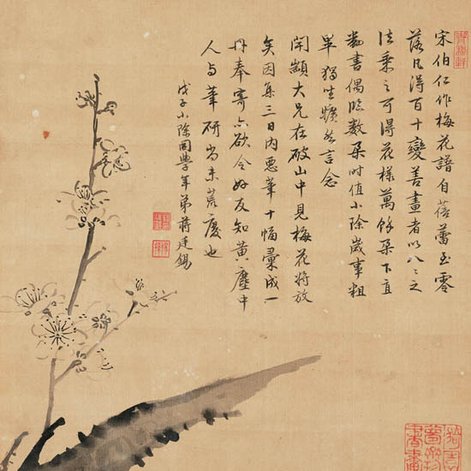 宋伯仁作梅花譜自蓓蕾至零
落凡得百十變善畫者以八八之
法乘之可得花樣萬餘朶下直
書偶臨數朶时值小除歲事粗
畢獨然言念
大兄在破山中見梅花將放
矣因集三日内惡筆十幅彙成一
冊奉寄亦欲令好友知黃塵中
人与筆研尚未荒廢也
戊子小除同學年弟蔣廷錫